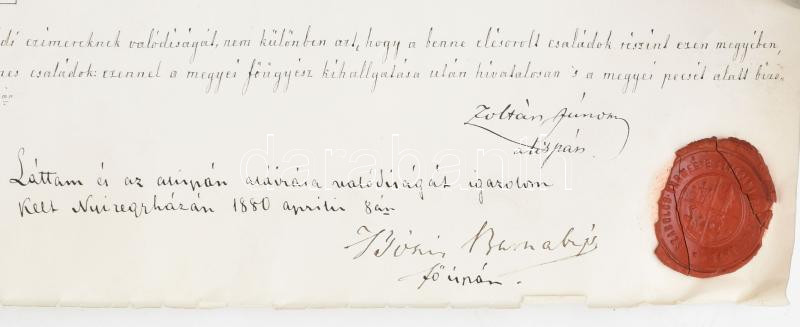 di czimereknek valódiságát, nem különben azt, hogy a benne elésorolt családok részint ezen megyében,
nes családok: ezennel a megyei főügyész kihallgatása után hivatalosan 's a megyei pecsét alatt bizo-
án
Zoltán János
alispán.
Láttam és az alispán aláirása valódiságát igazolom
Kelt Nyiregyházán 1880 április 8án
Barnabás
főispán.
darabanth